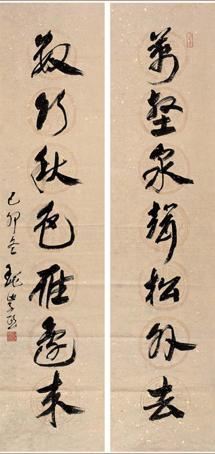 萬壑泉聲松外去
數行秋色雁邊來
己卯冬 魏學益